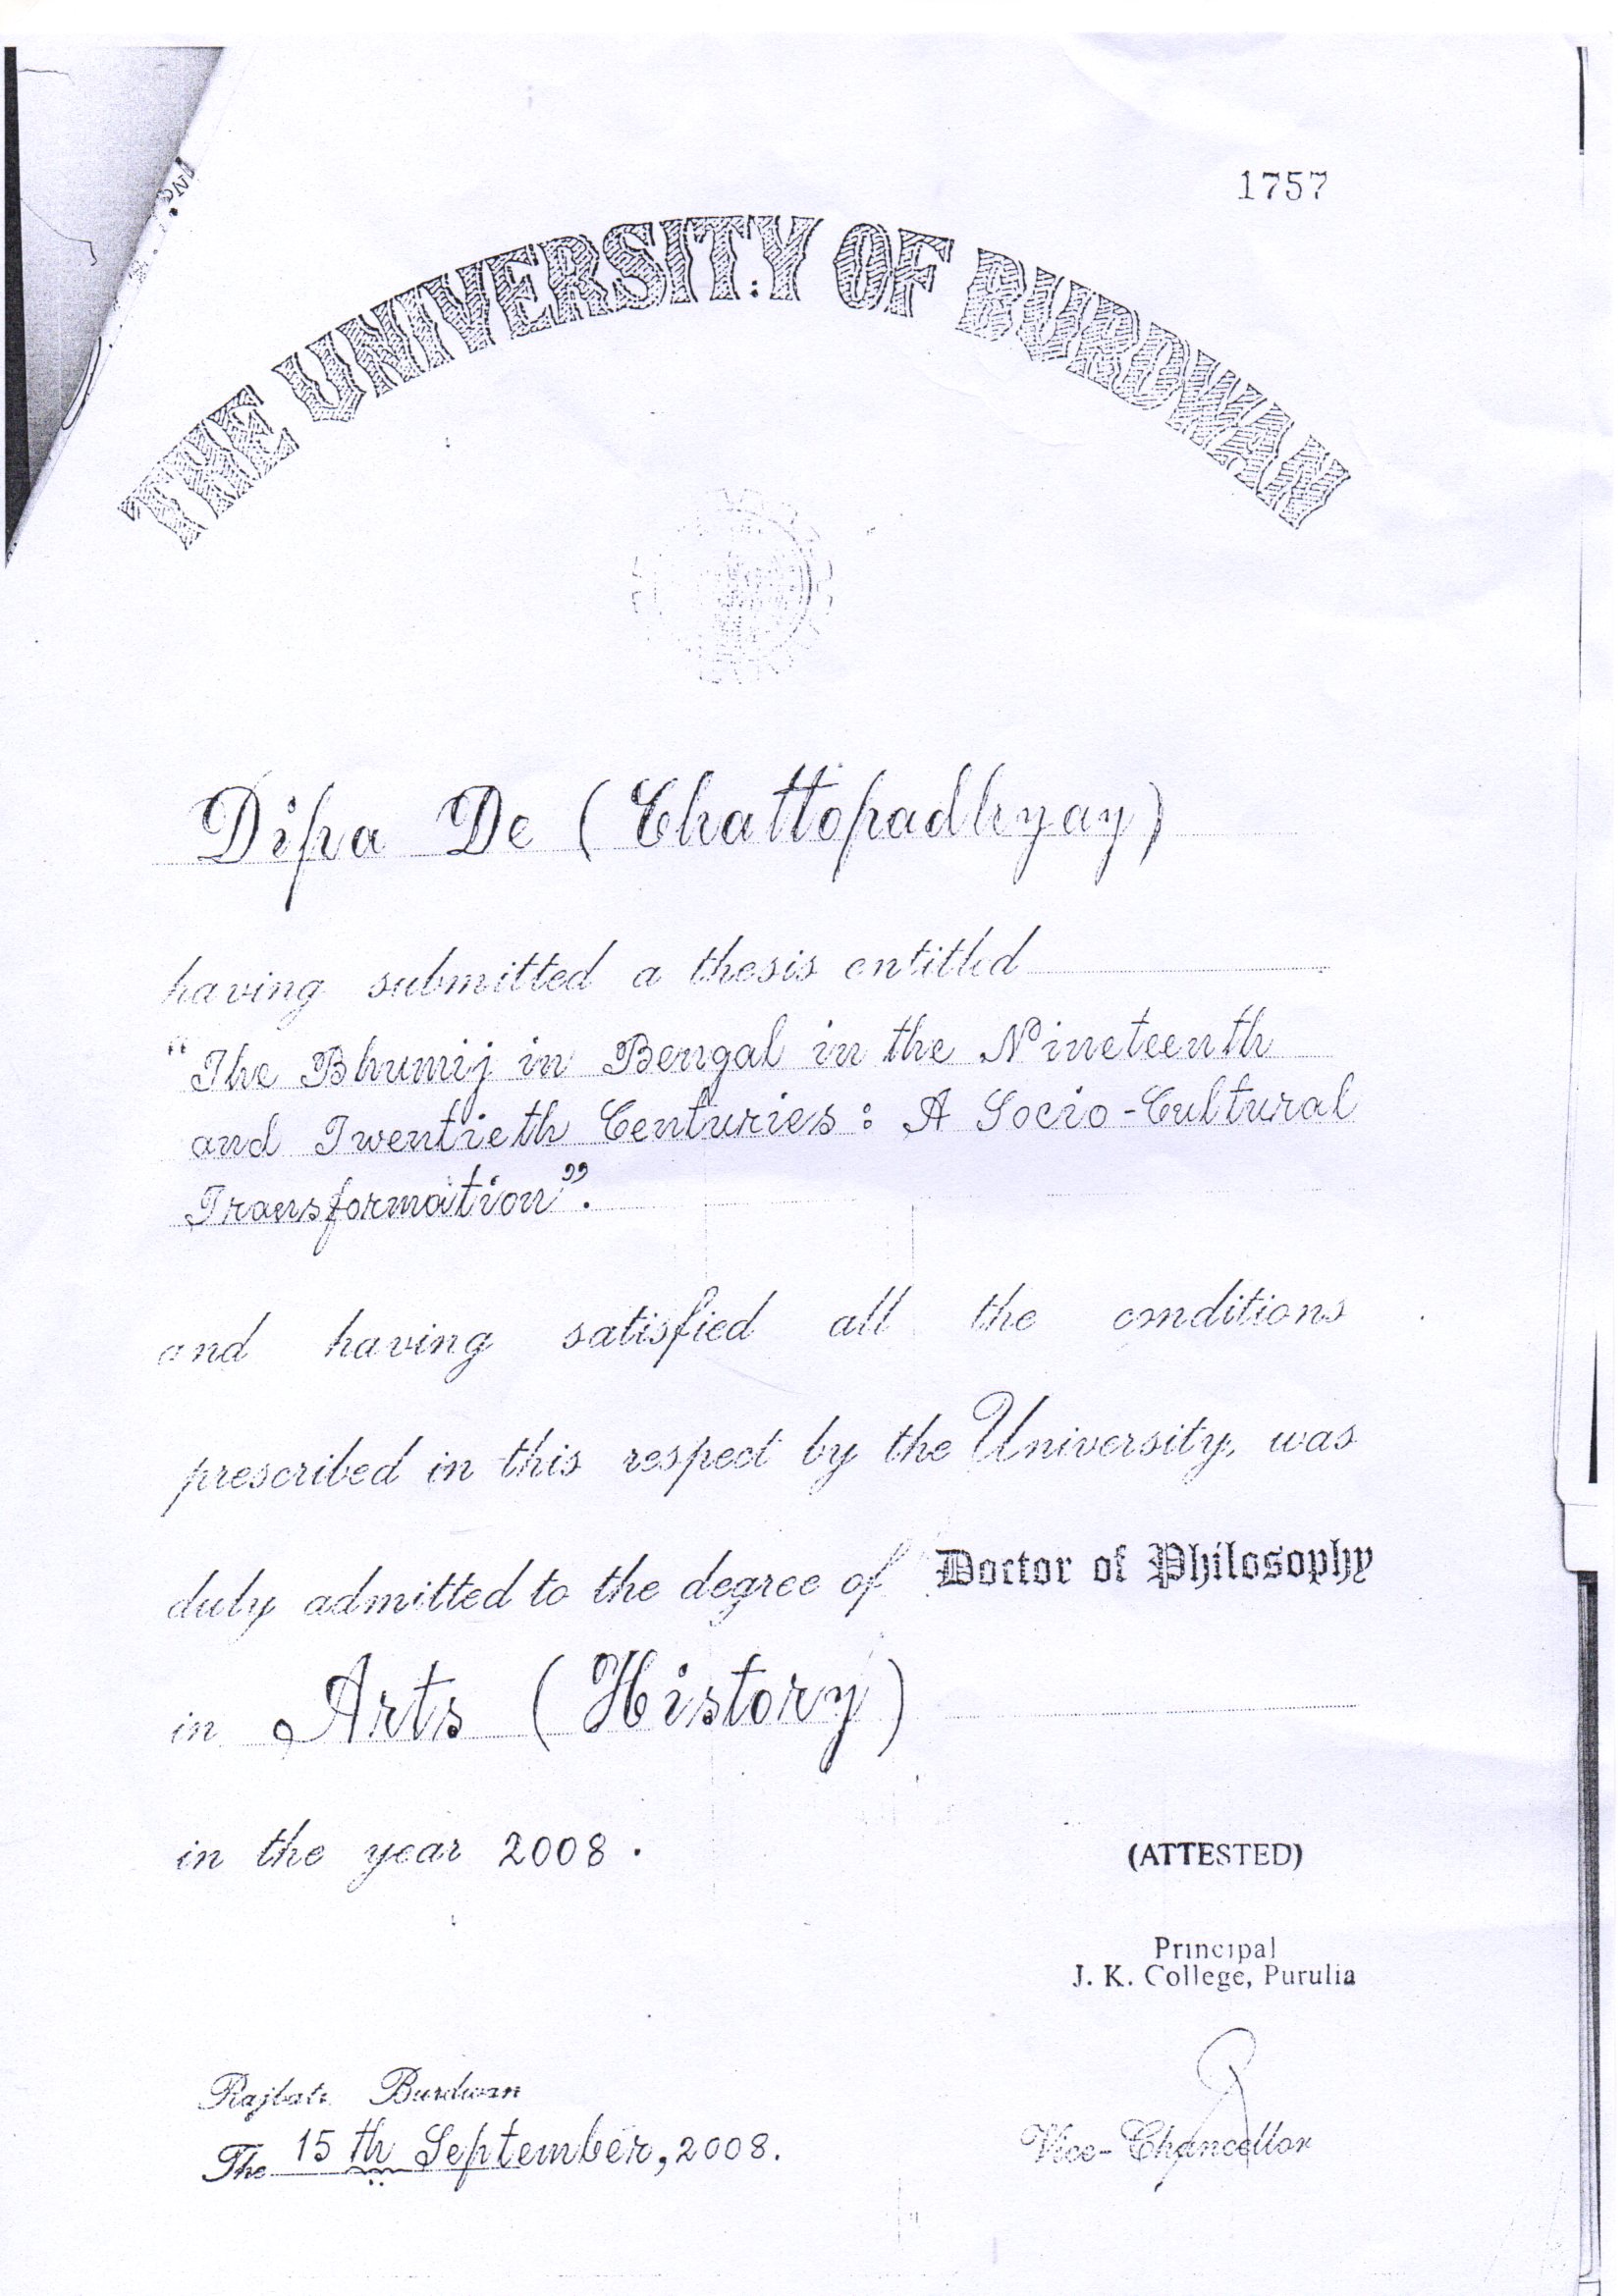 1757
THE UNIVERSITY OF BURDWAN
Dipa De (Chattopadhyay)
having submitted a thesis entitled
"The Bhumij in Bengal in the Nineteenth
and Twentieth Centuries: A Socio-Cultural
Transformation".
and having satisfied all the conditions
prescribed in this respect by the University, was
duly admitted to the degree of Doctor of Philosophy
in Arts (History)
in the year 2008.
(ATTESTED)
Principal
J. K. College, Purulia
Rajbati Burdwan
The 15th September, 2008.
Vice-Chancellor